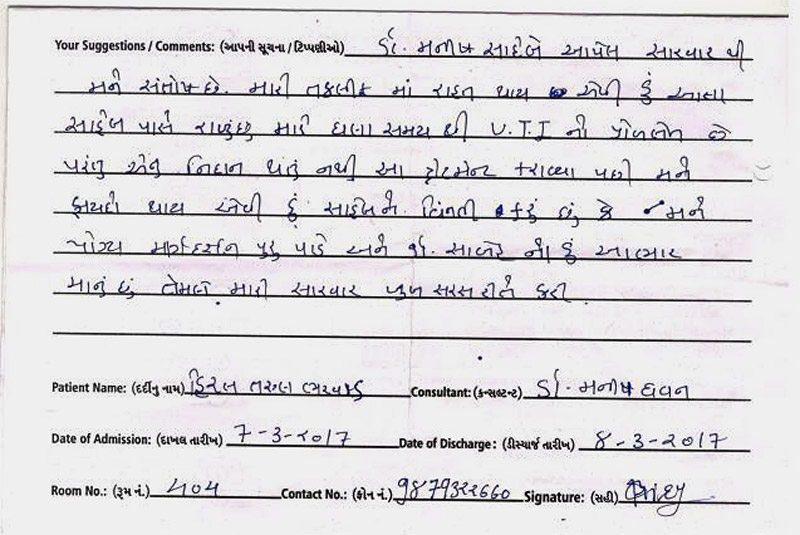 Your Suggestions / Comments: (આપની સૂચના / ટિપ્પણીઓ) ડૉ. મનીષ સાહેબે આપેલ સારવાર થી
મને સંતોષ છે. મારી તકલીફ માં રાહત થાય એવી હું આશા
સાહેબ પાસે રાખું છું મારે ઘણા સમય થી U.T.I નો પ્રોબ્લેમ છે
પરંતુ એનું નિદાન થતું નથી આ ટ્રીટમેન્ટ કરાવ્યા પછી મને
ફાયદો થાય એવી હું સાહેબને વિનંતી કરું છું કે મને
યોગ્ય માર્ગદર્શન પુરુ પાડે અને ડૉ. સાહેબ નો હું આભાર
માનું છું તેમણે મારી સારવાર ખુબ સરસ રીતે કરી.
Patient Name: (દર્દીનુ નામ) હિરલ તરુણ Consultant: (કન્સલ્ટન્ટ) ડૉ. મનીષ ધવન
Date of Admission: (દાખલ તારીખ) 7-3-2017 Date of Discharge: (ડીસ્ચાર્જ તારીખ) 8-3-2017
Room No.: (રૂમ નં.) 404 Contact No.: (ફોન નં.) 9879322660 Signature: (સહી)